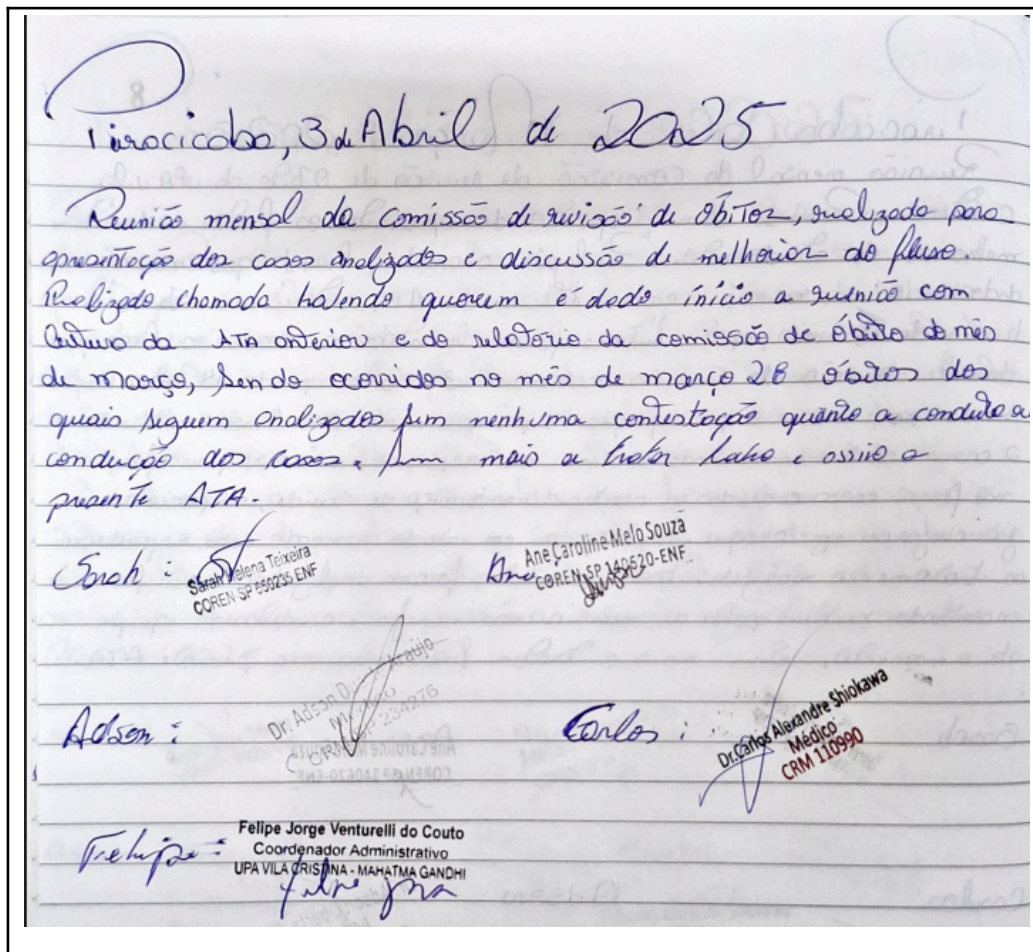 Piracicaba, 3 de Abril de 2025
Reunião mensal da comissão de revisão de óbitos, realizada para
apresentação dos casos analizados e discussão de melhorias do fluxo.
Realizado chamada havendo quorum é dado início a reunião com
leitura da ATA anterior e do relatório da comissão de óbito do mês
de março, sendo ocorridos no mês de março 28 óbitos dos
quais seguem analizados sem nenhuma contestação quanto a conduta a
condução dos casos. Sem mais a tratar lavro e assino a
presente ATA.
Sarah :
Sarah Helena Teixeira
COREN SP 650235 ENF
Ane :
Ane Caroline Melo Souza
COREN SP 140620-ENF
Adson :
Dr. Adson Araújo
Médico
234276
Carlos :
Dr. Carlos Alexandre Shiokawa
Médico
CRM 110990
Felipe :
Felipe Jorge Venturelli do Couto
Coordenador Administrativo
UPA VILA CRISTINA - MAHATMA GANDHI